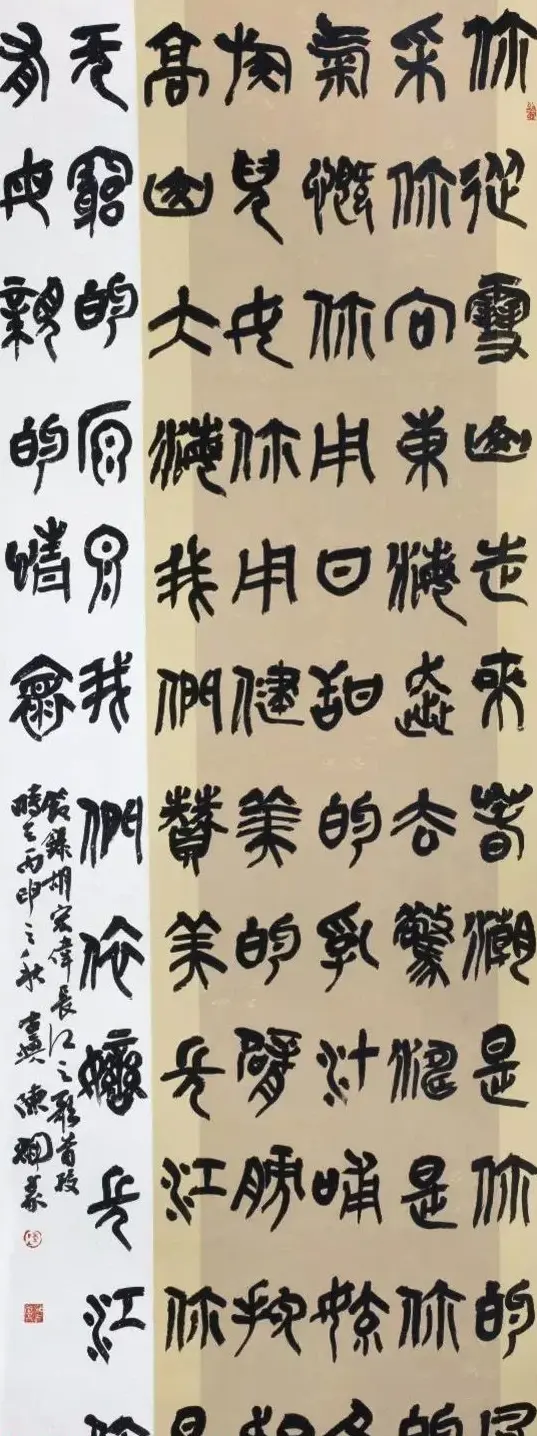 你從雪山走來春潮是你的風
采你向東海奔去驚濤是你的
氣概你用甘甜的乳汁哺育各
族兒女你用健美的臂膀挽起
高山大海我們贊美長江你是
无窮的源泉我們依戀長江你
有母親的情懷
節錄胡宏偉長江之歌首段
時在丙申之秋 陳